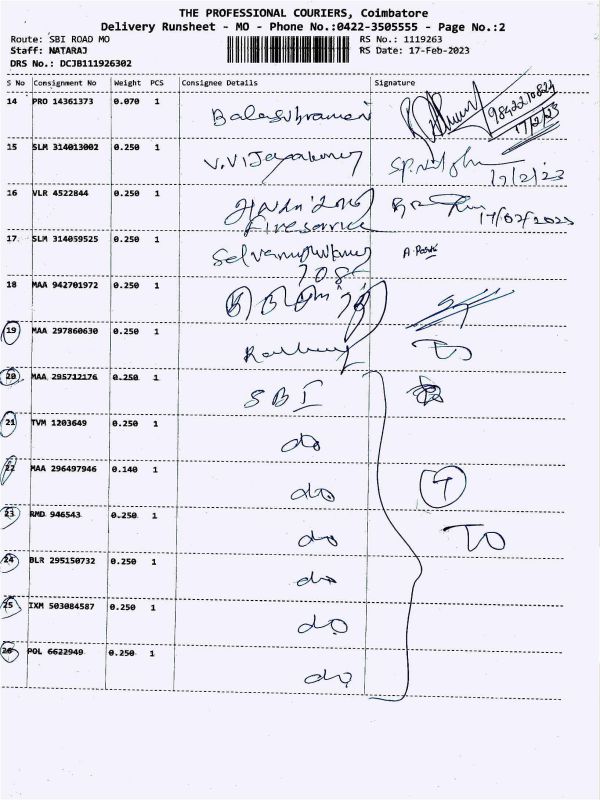 THE PROFESSIONAL COURIERS, Coimbatore
Delivery Runsheet - MO - Phone No.:0422-3505555 - Page No.:2
Route: SBI ROAD MO RS No.: 1119263
Staff: NATARAJ RS Date: 17-Feb-2023
DRS No.: DCJB111926302
S No Consignment No Weight PCS Consignee Details Signature
14 PRO 14361373 0.070 1 Balasubramani 9842210824
17/2/23
15 SLM 314013002 0.250 1 V. Vijayakumar 17/2/23
16 VLR 4522844 0.250 1 17/02/2023
Fire service
17 SLM 314059525 0.250 1
18 MAA 942701972 0.250 1
19 MAA 297860630 0.250 1 TO
20 MAA 295712176 0.250 1 SBI
21 TVM 1203649 0.250 1 do
22 MAA 296497946 0.140 1 do
23 RMD 946543 0.250 1 do TO
24 BLR 295150732 0.250 1 do
25 IXM 503084587 0.250 1 do
26 POL 6622949 0.250 1 do